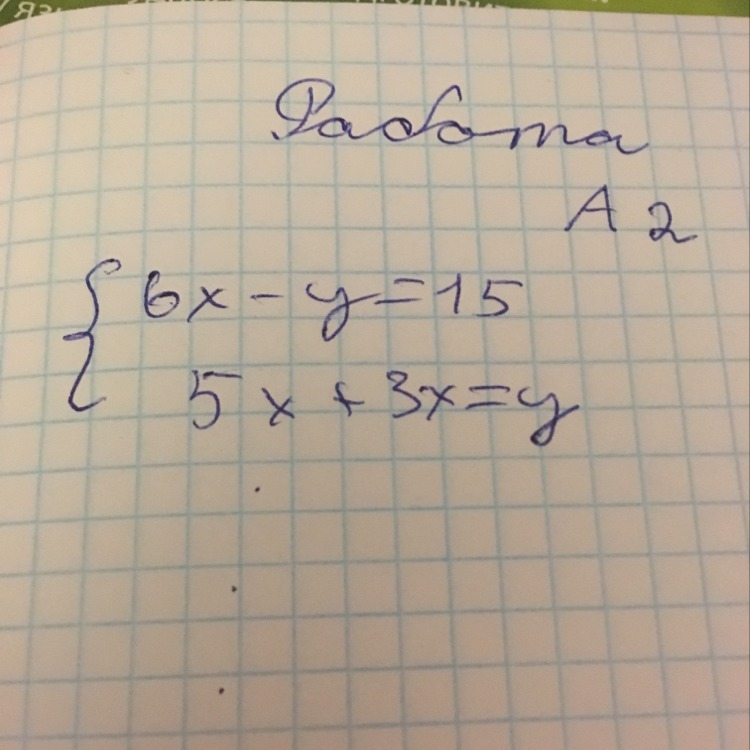 Работа
А 2
{ 6x - y = 15
5x + 3x = y